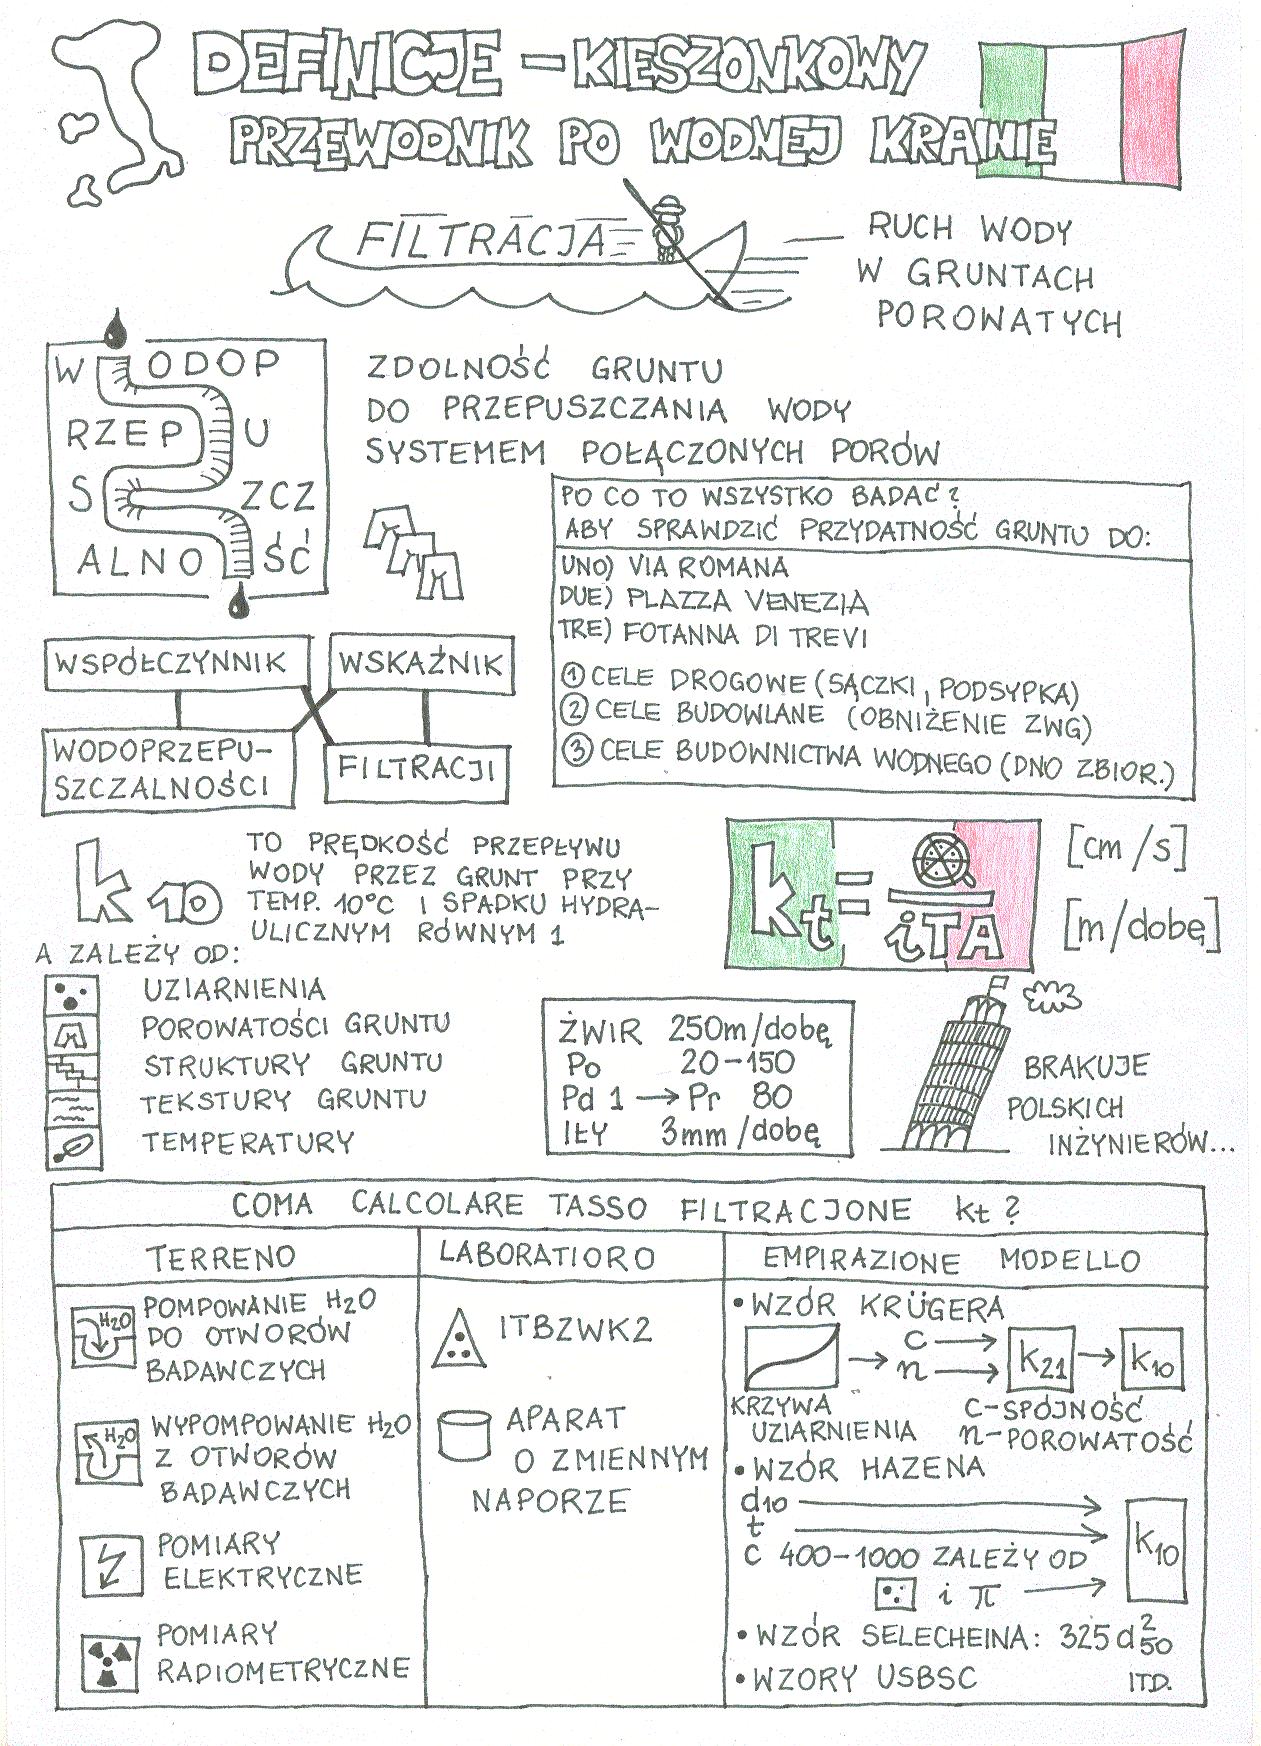 DEFINICJE – KIESZONKOWY
PRZEWODNIK PO WODNEJ KRAINIE
FILTRACJA
RUCH WODY
W GRUNTACH
POROWATYCH
WODOP
RZEPU
SZCZ
ALNOŚĆ
ZDOLNOŚĆ GRUNTU
DO PRZEPUSZCZANIA WODY
SYSTEMEM POŁĄCZONYCH PORÓW
PO CO TO WSZYSTKO BADAĆ?
ABY SPRAWDZIĆ PRZYDATNOŚĆ GRUNTU DO:
UNO) VIA ROMANA
DUE) PLAZZA VENEZIA
TRE) FOTANNA DI TREVI
① CELE DROGOWE (SĄCZKI, PODSYPKA)
② CELE BUDOWLANE (OBNIŻENIE ZWG)
③ CELE BUDOWNICTWA WODNEGO (DNO ZBIOR.)
WSPÓŁCZYNNIK
WSKAŹNIK
WODOPRZEPU-
SZCZALNOŚCI
FILTRACJI
k10
TO PRĘDKOŚĆ PRZEPŁYWU
WODY PRZEZ GRUNT PRZY
TEMP. 10°C I SPADKU HYDRA-
ULICZNYM RÓWNYM 1
kt = iTA
[cm/s]
[m/dobę]
A ZALEŻY OD:
UZIARNIENIA
POROWATOŚCI GRUNTU
STRUKTURY GRUNTU
TEKSTURY GRUNTU
TEMPERATURY
ŻWIR 250m/dobę
Po 20–150
Pd 1 → Pr 80
IŁY 3mm/dobę
BRAKUJE
POLSKICH
INŻYNIERÓW...
COMA CALCOLARE TASSO FILTRACJONE kt?
TERRENO
H2O
POMPOWANIE H2O
DO OTWORÓW
BADAWCZYCH
H2O
WYPOMPOWANIE H2O
Z OTWORÓW
BADAWCZYCH
POMIARY
ELEKTRYCZNE
POMIARY
RADIOMETRYCZNE
LABORATIORO
ITBZWK2
APARAT
O ZMIENNYM
NAPORZE
EMPIRAZIONE MODELLO
• WZÓR KRÜGERA
→ c → n → k21 → k10
KRZYWA
UZIARNIENIA
C-SPÓJNOŚĆ
n-POROWATOŚĆ
• WZÓR HAZENA
d10
t
C 400–1000 ZALEŻY OD
i π
k10
• WZÓR SELECHEINA: 325 d²50
• WZORY USBSC ITD.